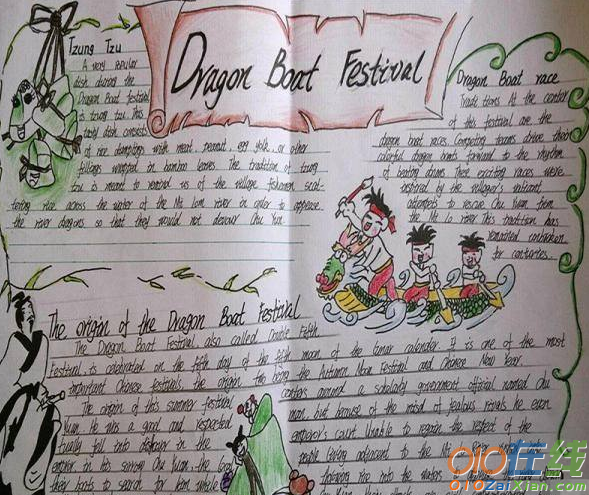 Dragon Boat Festival
Tzung Tzu
A very popular
dish during the
Dragon Boat festival
is tzung tzu. This
tasty dish consist
of rice dumplings with meat, peanut, egg yolk, or other
fillings wrapped in bamboo leaves. The tradition of tzung
tzu is meant to remind us of the village fishermen scat-
tering rice across the water of the Mi Lom river in order to appease
the river dragons so that they would not devour Chu Yuan
Dragon Boat race
Traditions At the center
of this festival are the
dragon boat races. Competing teams drive their
colorful dragon boats forward to the rhythm
of beating drums These exciting races were
inspired by the villager's valiant
attempts to rescue Chu Yuan from
the Mi Lo river This tradition has
remained
for centuries.
The origin of the Dragon Boat Festival
The Dragon Boat Festival, also called Double Fifth
Festival, is celebrated on the fifth day of the fifth moon of the lunar calendar. It is one of the most
important Chinese festivals, the origin being the Autumn Moon Festival and Chinese New Year.
The origin of this summer festival centers around a scholarly government official named Chu
Yuan. He was a good and respected man, but because of the misdeeds of jealous rivals he
fell into disfavor in the emperor's court. Unable to regain the respect of the
emperor in his sorrow Chu Yuan
people living adjacent to the Mi Lo River
their boats to search for him while
into the waters
010在线
010ZaiXian.com